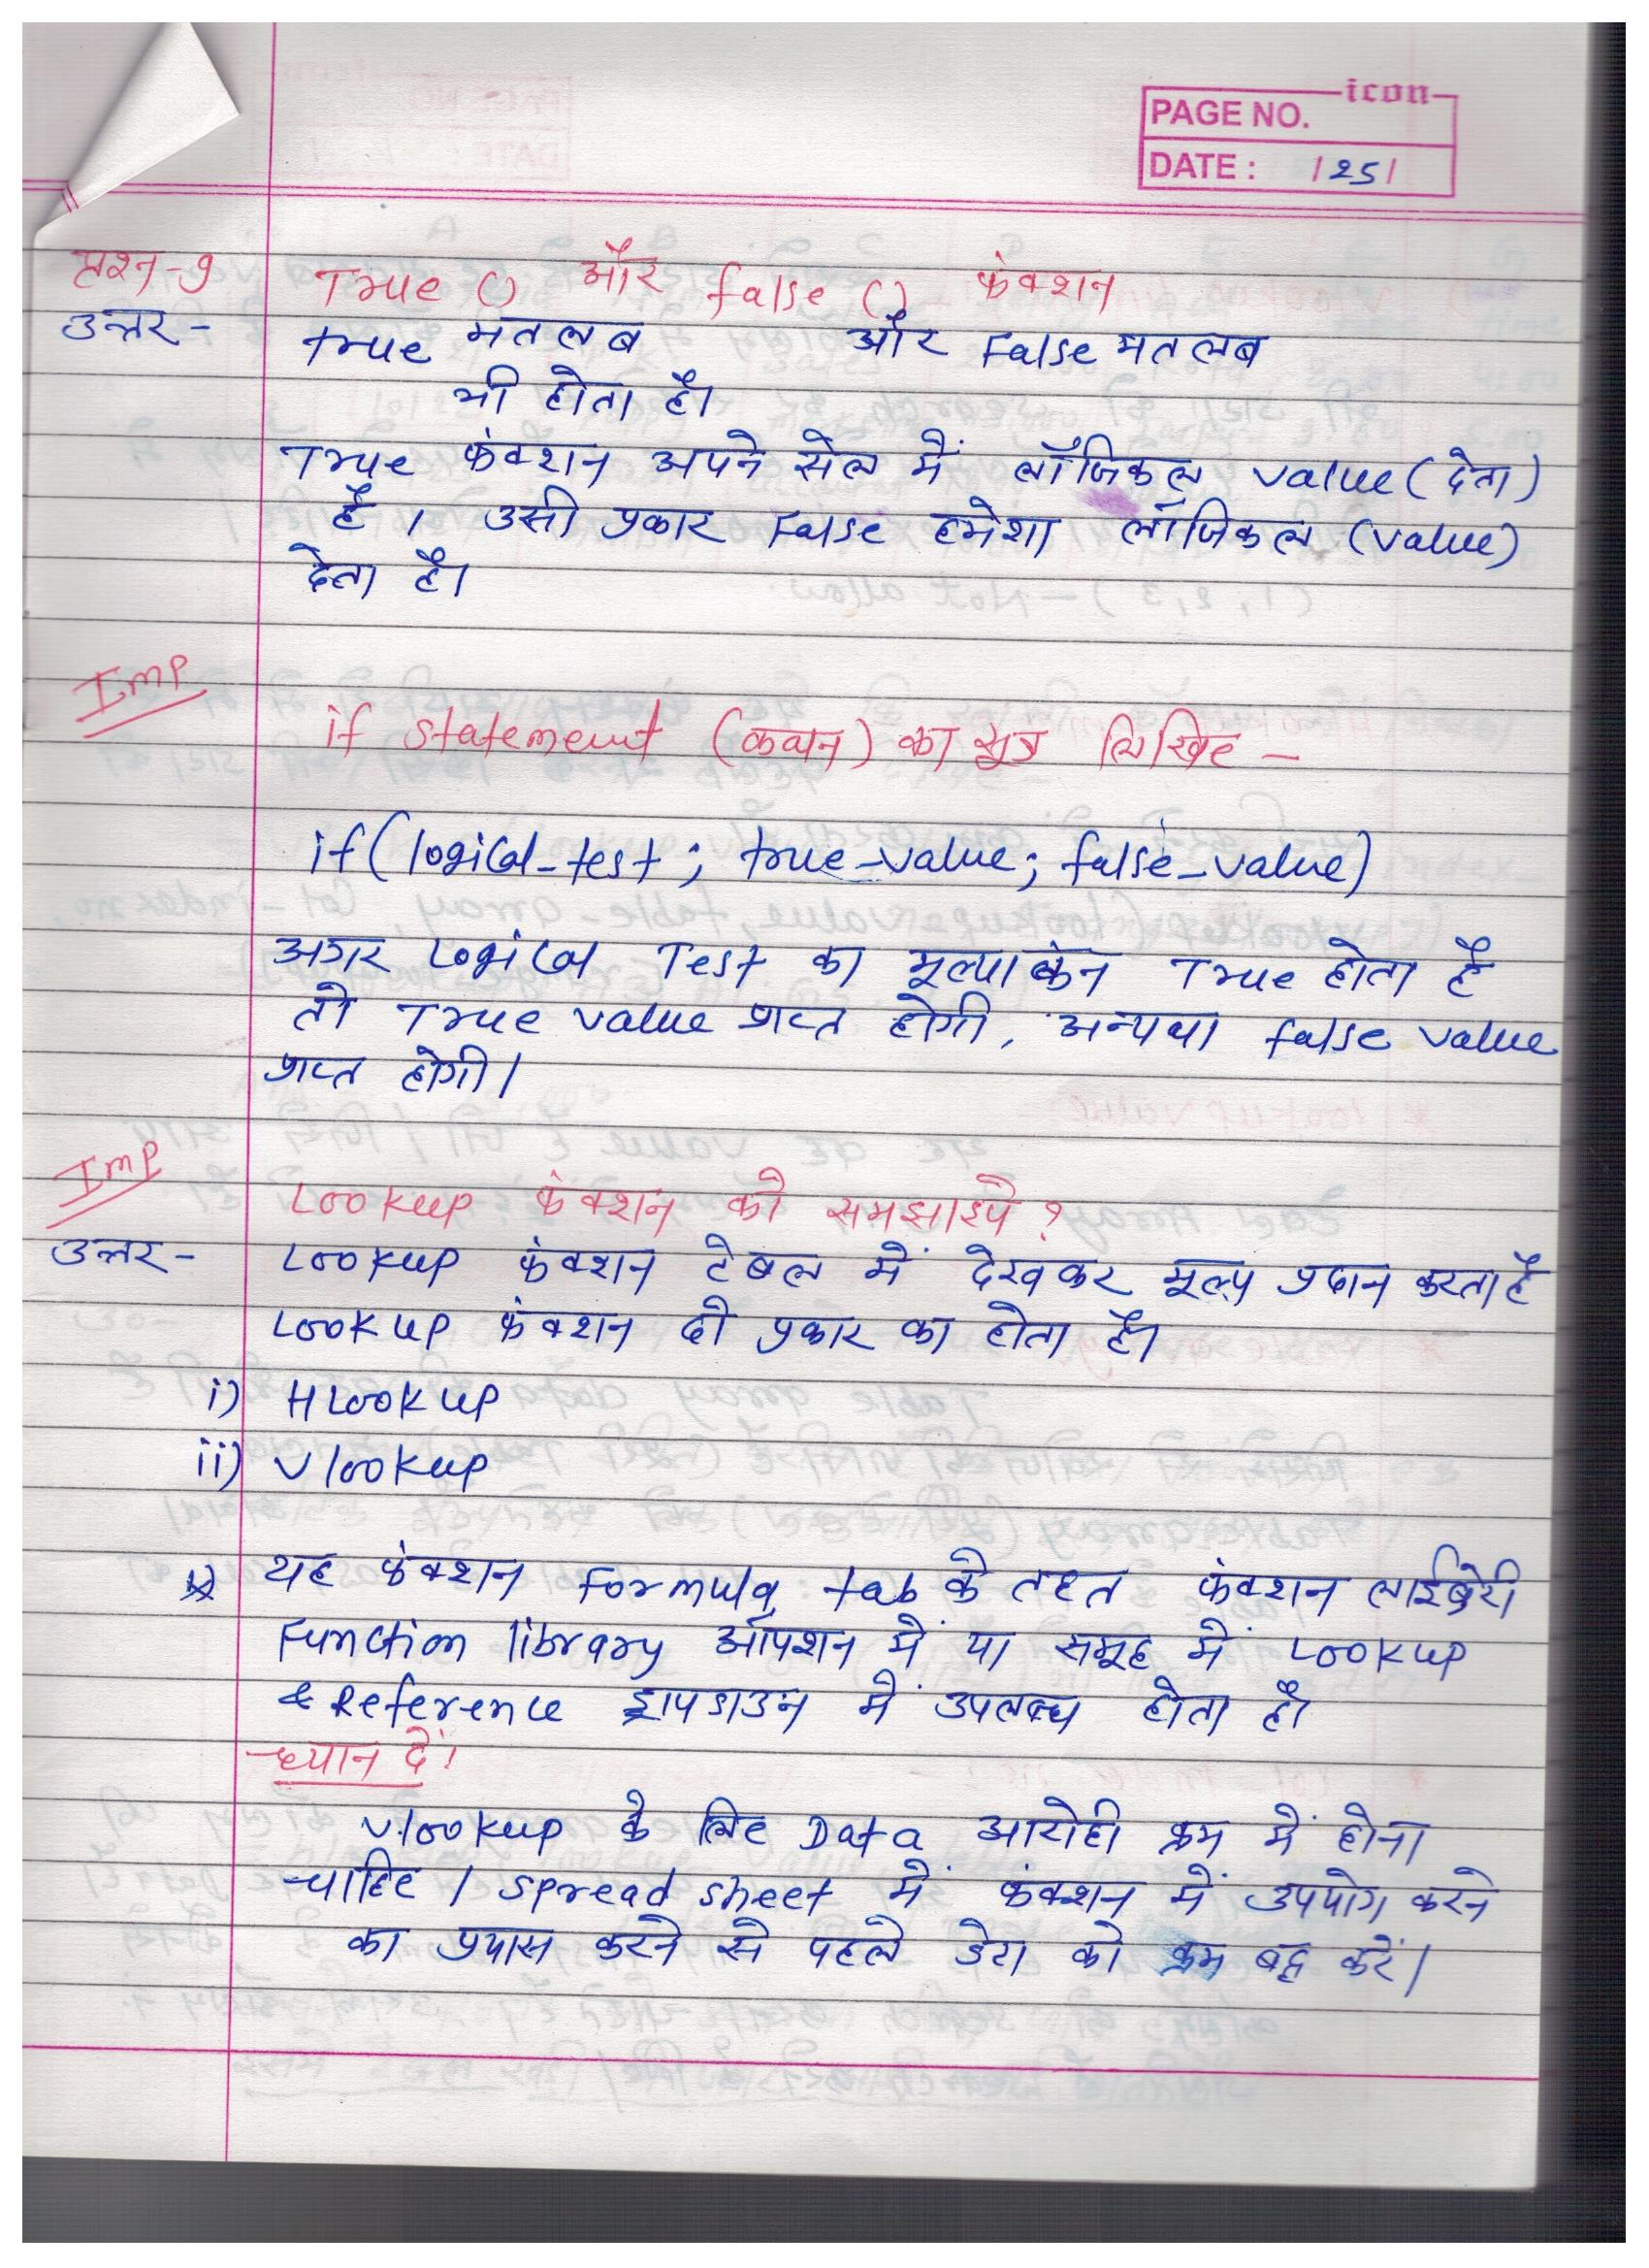 icon
PAGE NO.
DATE : /25/
प्रश्न-9 True () और false () फंक्शन
उत्तर- true मतलब और False मतलब
भी होता है।
True फंक्शन अपने सेल में लॉजिकल value (देता)
है, उसी प्रकार False हमेशा लॉजिकल (value)
देता है।
Imp
if statement (कथन) का सूत्र लिखिए -
if(logical-test; true-value; false-value)
अगर Logical Test का मूल्याकंन True होता है
तो True value प्राप्त होगी, अन्यथा false value
प्राप्त होगी।
Imp
Lookup फंक्शन को समझाइये?
उत्तर- Lookup फंक्शन टेबल में देखकर मूल्य प्रदान करता है
Lookup फंक्शन दो प्रकार का होता है।
i) HLookup
ii) Vlookup
यह फंक्शन Formula tab के तहत फंक्शन लाईब्रेरी
Function library ऑपशन में या समूह में Lookup
& Reference ड्रापडाउन में उपलब्ध होता है।
ध्यान दें।
Vlookup के लिए Data आरोही क्रम में होना
चाहिए। Spread sheet में फंक्शन में उपयोग करने
का प्रयास करने से पहले डेटा को क्रम बद्ध करें।